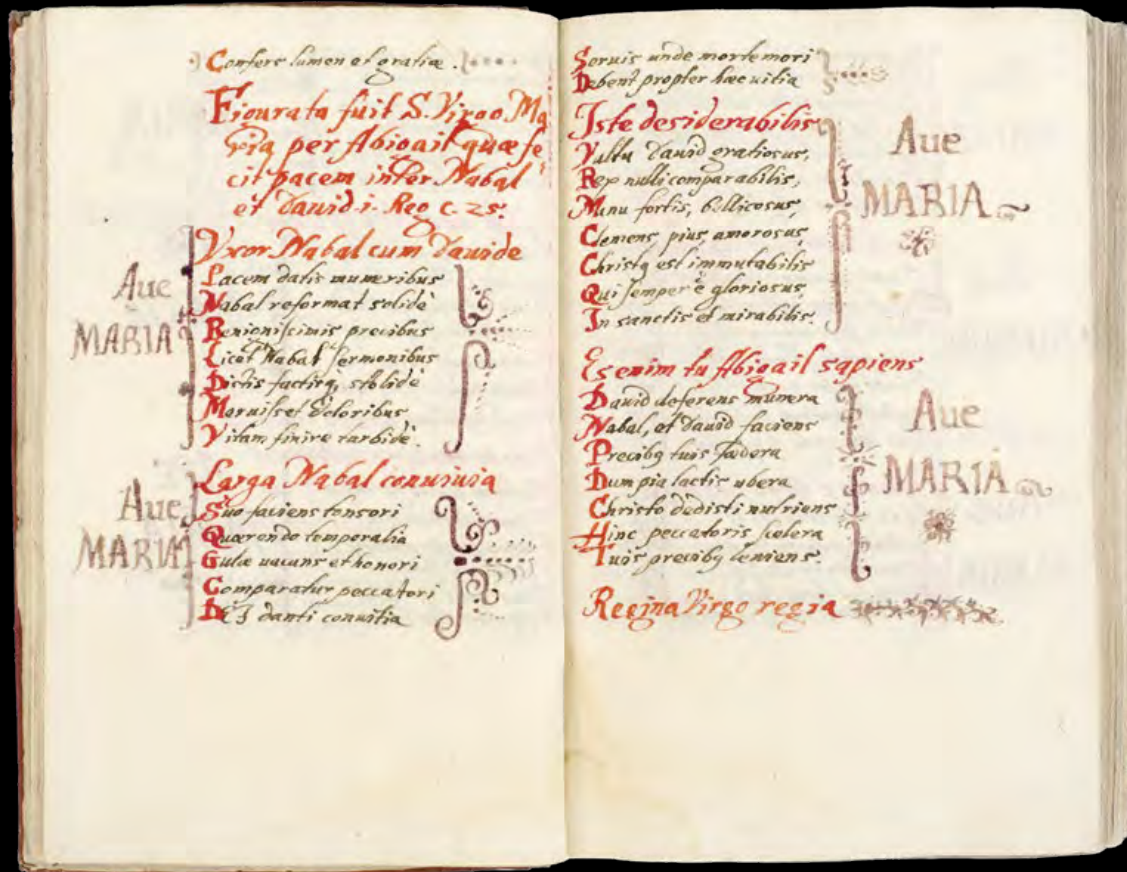 Confers lumen et gratiæ.
Figurata fuit S. Virgo Ma
ria per Abigail quæ fe
cit pacem inter Nabal
et Dauid. i. Reg c. 25.
Vxor Nabal cum Dauide
Pacem datis muneribus
Nabal reformat solidè
Benignissimis precibus
Licet Nabal sermonibus
Dictis factisq, stolidè
Meruisset doloribus
Vitam finire turbidè.
Aue
MARIA
Larga Nabal conuiuia
Suo faciens tonsori
Quærendo temporalia
Gulæ uacans et honori
Comparatur peccatori
danti conuitia
Aue
MARIA
Seruis unde morte mori
Debent propter hæc uitia
Iste desiderabilis
Vultu Dauid gratiosus,
Rex nulli comparabilis,
Manu fortis, bellicosus,
Clemens, pius, amorosus,
Christq est immutabilis
Qui semper ē gloriosus,
In sanctis et mirabilis.
Aue
MARIA
Es enim tu Abigail sapiens
Dauid deferens munera
Nabal, et Dauid faciens
Precibq tuis fædera
Dum pia lactis ubera
Christo dedisti nutriens
Hinc peccatoris scelera
Tuis precibq leniens.
Aue
MARIA
Regina Virgo regia